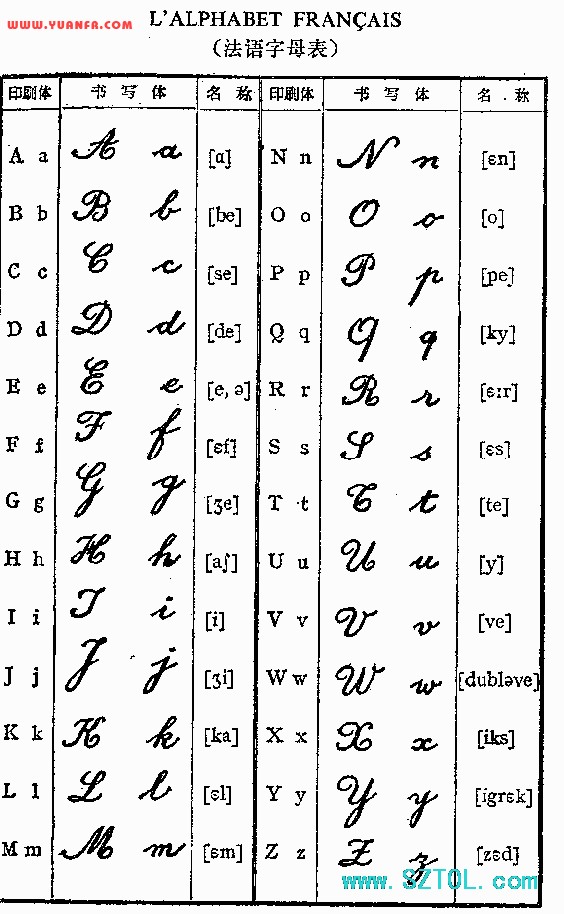 L'ALPHABET FRANÇAIS
WWW.YUANFA.COM
(法语字母表)
印刷体 书写体 名称 印刷体 书写体 名称
A a A a [ɑ] N n N n [ɛn]
B b B b [be] O o O o [o]
C c C c [se] P p P p [pe]
D d D d [de] Q q Q q [ky]
E e E e [e, ə] R r R r [ɛ:r]
F f F f [ɛf] S s S s [ɛs]
G g G g [ʒe] T t T t [te]
H h H h [aʃ] U u U u [y]
I i I i [i] V v V v [ve]
J j J j [ʒi] W w W w [dubləve]
K k K k [ka] X x X x [iks]
L l L l [ɛl] Y y Y y [igrɛk]
M m M m [ɛm] Z z Z z [zɛd]
www.SZTOL.com